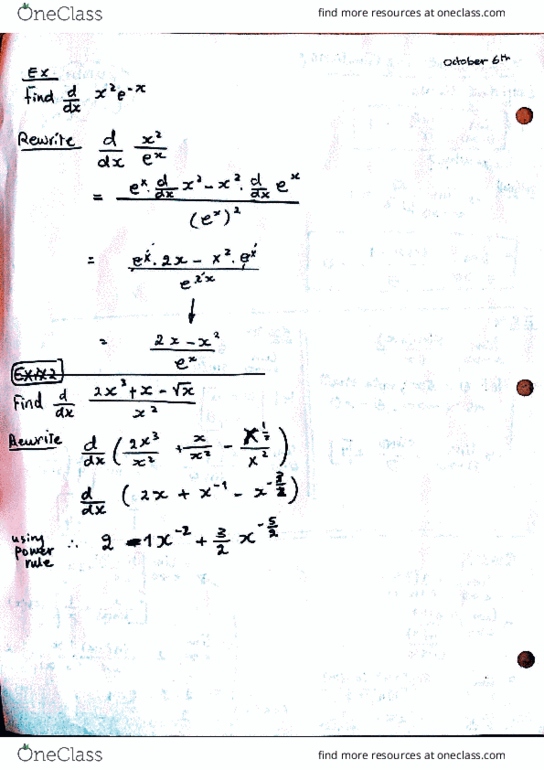 OneClass find more resources at oneclass.com
October 6th
Ex.
Find d/dx x²e^-x
Rewrite d/dx x²/e^x
= (e^x · d/dx x² - x² · d/dx e^x)/(e^x)²
= (e^x · 2x - x² · e^x)/e^2x
↓
= (2x - x²)/e^x
Ex 2
Find d/dx (2x³ + x - √x)/x²
Rewrite d/dx (2x³/x² + x/x² - x^1/2/x²)
d/dx (2x + x^-1 - x^-3/2)
using power rule ∴ 2 - 1x^-2 + 3/2 x^-5/2
OneClass find more resources at oneclass.com